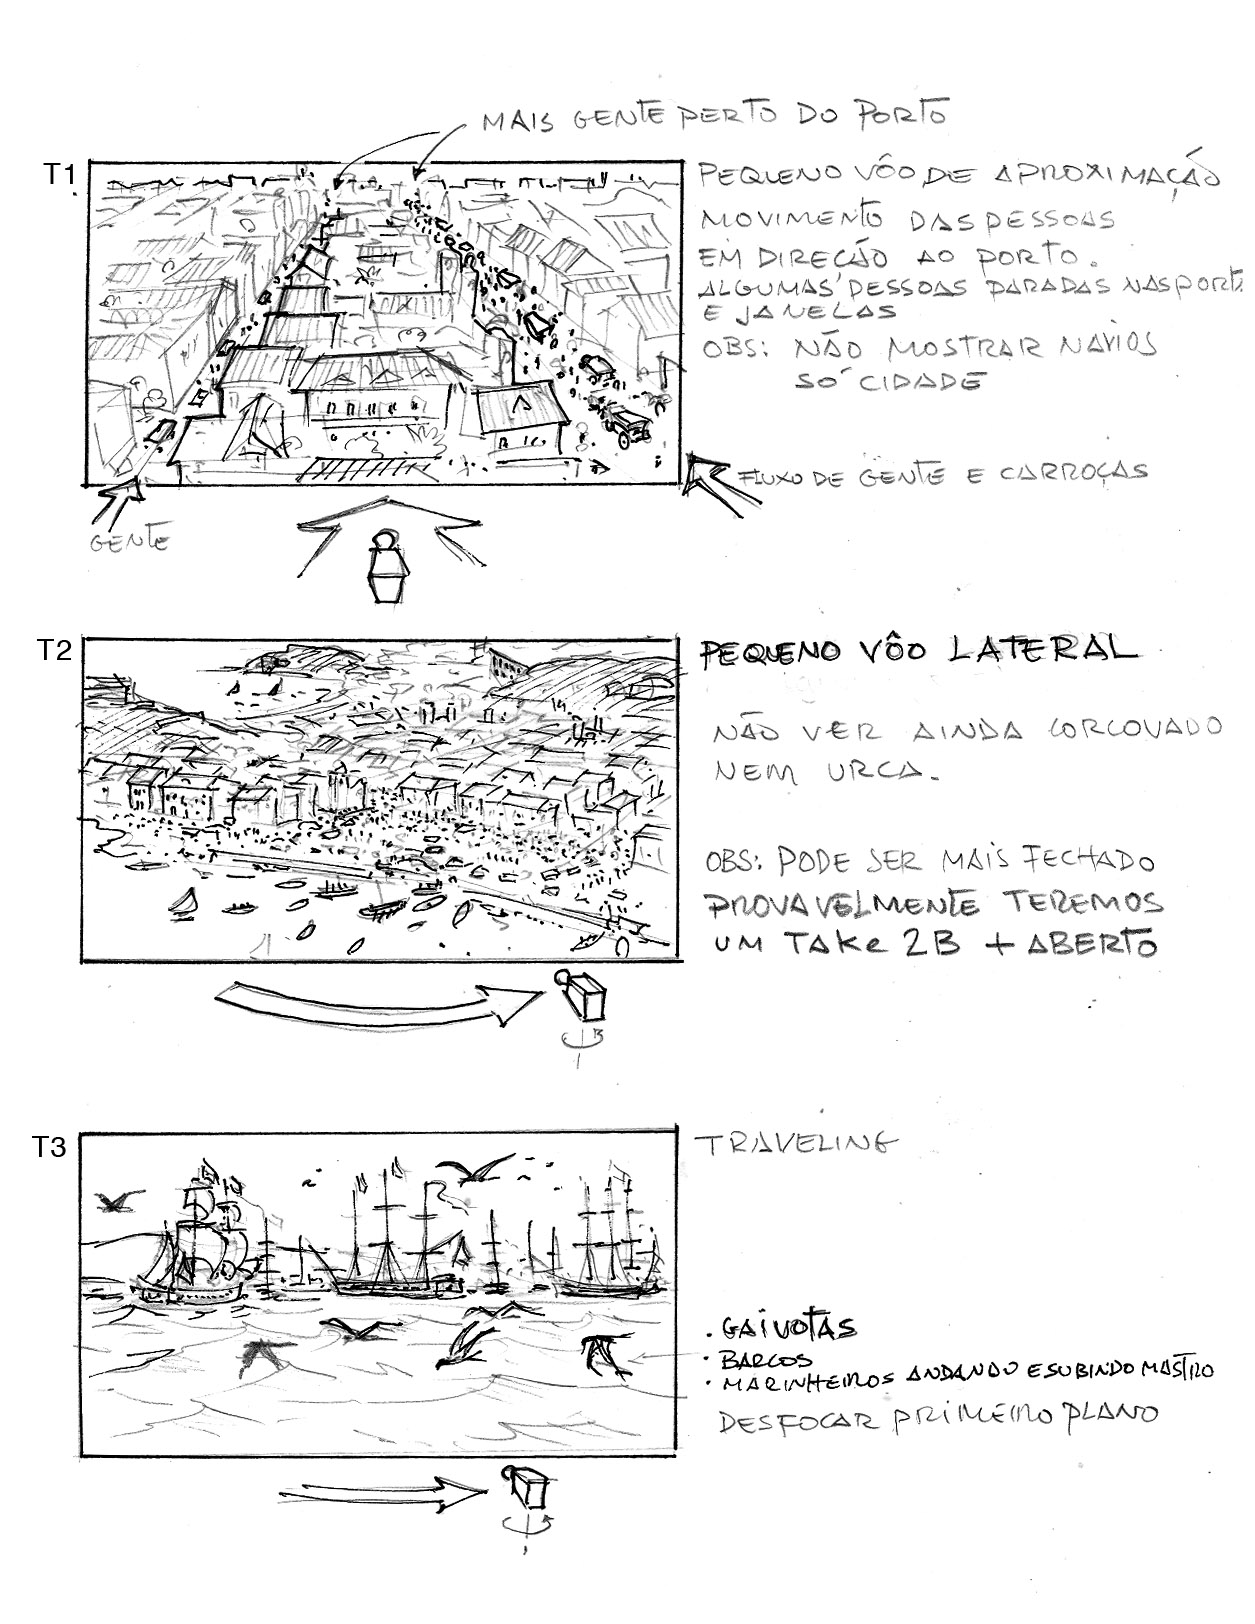 MAIS GENTE PERTO DO PORTO
T1
PEQUENO VÔO DE APROXIMAÇÃO
MOVIMENTO DAS PESSOAS
EM DIREÇÃO AO PORTO.
ALGUMAS PESSOAS PARADAS NAS PORTAS
E JANELAS
OBS: NÃO MOSTRAR NAVIOS
SÓ CIDADE
FLUXO DE GENTE E CARROÇAS
GENTE
T2
PEQUENO VÔO LATERAL
NÃO VER AINDA CORCOVADO
NEM URCA.
OBS: PODE SER MAIS FECHADO
PROVAVELMENTE TEREMOS
UM TAKE 2B + ABERTO
T3
TRAVELING
. GAIVOTAS
· BARCOS
· MARINHEIROS ANDANDO E SUBINDO MASTRO
DESFOCAR PRIMEIRO PLANO